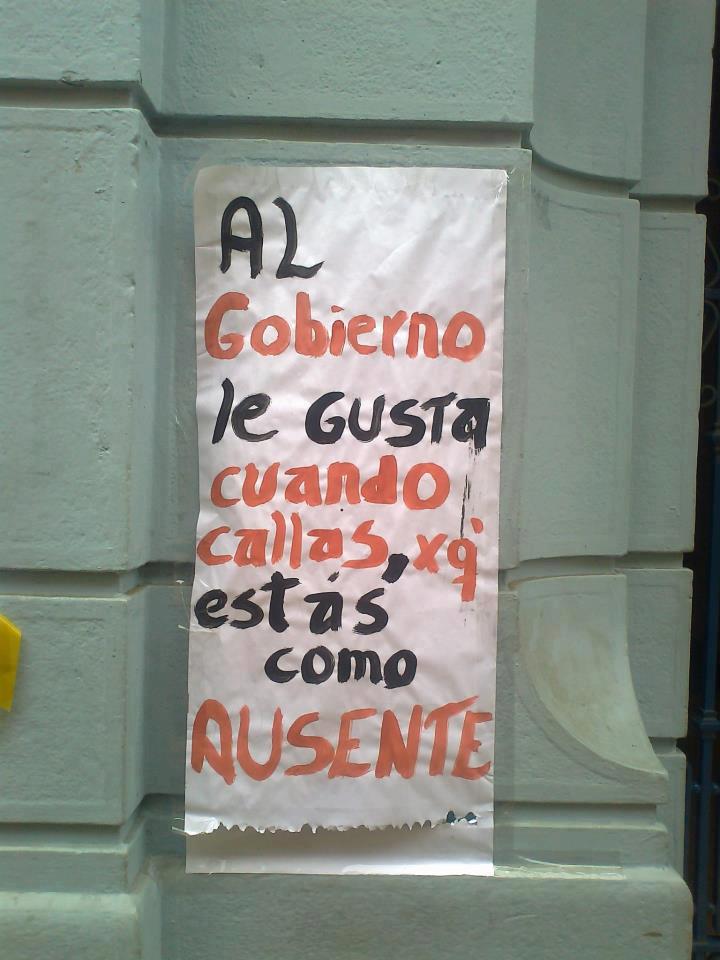 AL
Gobierno
le GUSTa
cuando
callas, xq'
estás
como
AUSENTE